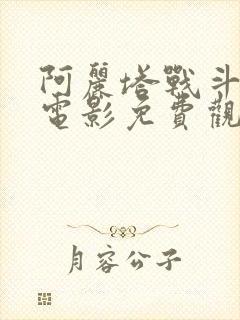 阿麗塔戰斗
電影免費觀
月容公子